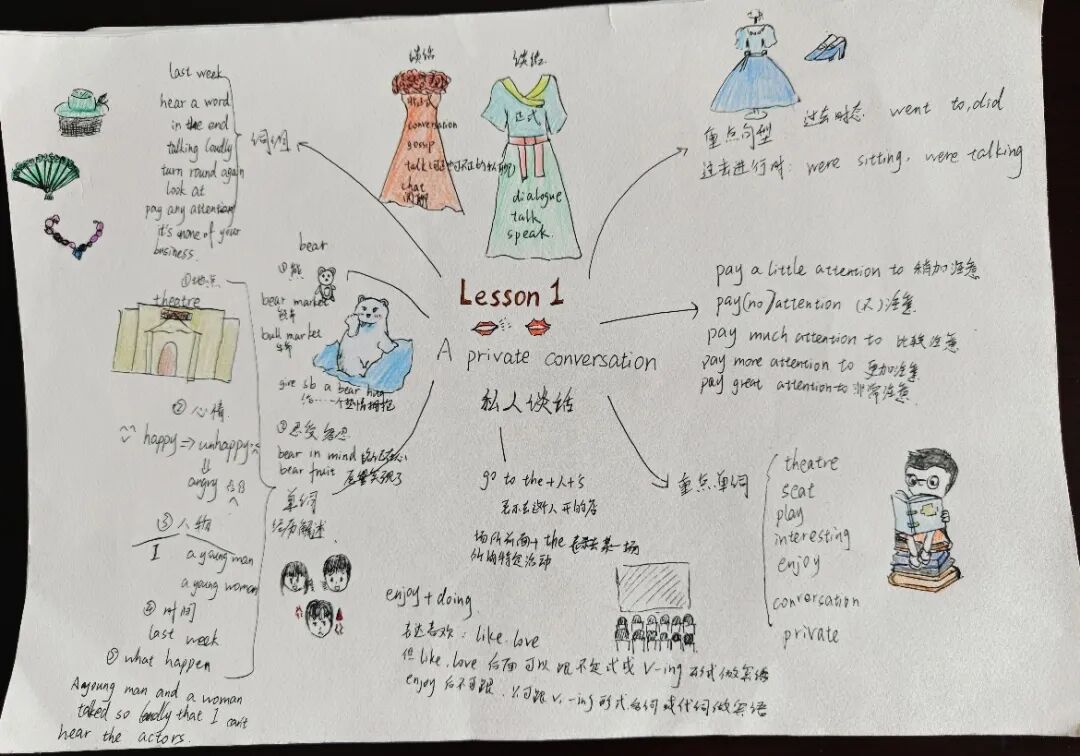 Lesson 1
A private conversation
私人谈话
last week
hear a word
in the end
talking loudly
turn round again
look at
pay any attention
it's none of your
business.
词组
谈话
conversation
gossip
talk
chat
闲聊
谈话
正式
dialogue
talk
speak.
重点句型
过去时态: went to, did
过去进行时: were sitting, were talking
pay a little attention to 稍加注意
pay(no)attention (不)注意
pay much attention to 比较注意
pay more attention to 更加注意
pay great attention to 非常注意
bear
①熊
bear market
熊市
bull market
牛市
give sb a bear hug
给……一个热情拥抱
②忍受 容忍
bear in mind
bear fruit
单词
①地点
theatre
②心情
happy ⇒ unhappy
⇓
angry
③人物
I a young man
a young woman
④时间
last week
⑤what happen
A young man and a woman
talked so loudly that I can't
hear the actors.
go to the+人+'s
表示去这个人开的店
场所前面+the 表示去某一场
所的特定活动
enjoy+doing
表达喜欢: like. love
但 like. love 后面可以跟不定式或 V-ing 形式做宾语
enjoy 后不可跟. 只可跟 v.-ing 形式名词或代词做宾语
重点单词
theatre
seat
play
interesting
enjoy
conversation
private